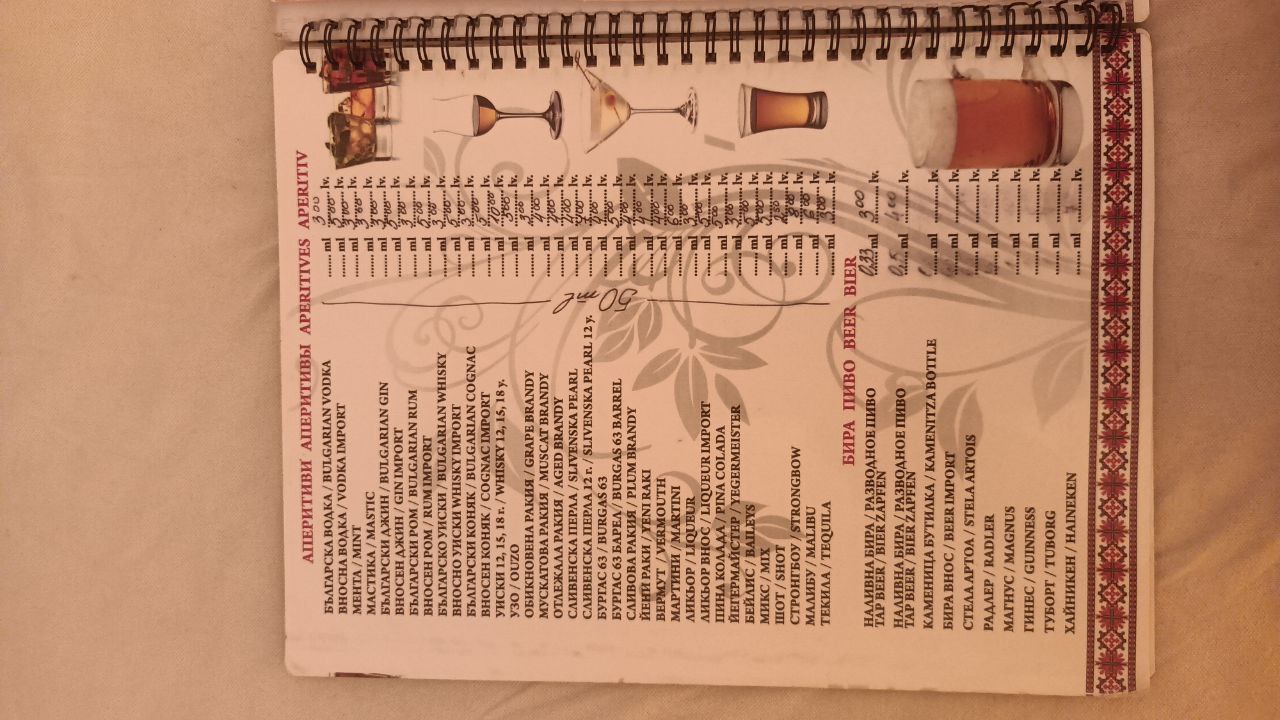 АПЕРИТИВИ АПЕРИТИВЫ APERITIVES APERITIV
БЪЛГАРСКА ВОДКА / BULGARIAN VODKA ....... ml 3 00 lv.
ВНОСНА ВОДКА / VODKA IMPORT ....... ml 5 00 lv.
МЕНТА / MINT ....... ml lv.
МАСТИКА / MASTIC ....... ml lv.
БЪЛГАРСКИ ДЖИН / BULGARIAN GIN ....... ml lv.
ВНОСЕН ДЖИН / GIN IMPORT ....... ml lv.
БЪЛГАРСКИ РОМ / BULGARIAN RUM ....... ml 3 00 lv.
ВНОСЕН РОМ / RUM IMPORT ....... ml 5 00 lv.
БЪЛГАРСКО УИСКИ / BULGARIAN WHISKY ....... ml 3 00 lv.
ВНОСНО УИСКИ WHISKY IMPORT ....... ml 5 00 lv.
БЪЛГАРСКИ КОНЯК / BULGARIAN COGNAC ....... ml 3 00 lv.
ВНОСЕН КОНЯК / COGNAC IMPORT ....... ml 5 00 lv.
УИСКИ 12, 15, 18 г. / WHISKY 12, 15, 18 y. ....... ml 10 00 lv.
УЗО / OUZO ....... ml lv.
ОБИКНОВЕНА РАКИЯ / GRAPE BRANDY ....... ml 3 00 lv.
МУСКАТОВА РАКИЯ / MUSCAT BRANDY ....... ml 4 00 lv.
ОТЛЕЖАЛА РАКИЯ / AGED BRANDY ....... ml lv.
СЛИВЕНСКА ПЕРЛА / SLIVENSKA PEARL ....... ml 4 00 lv.
СЛИВЕНСКА ПЕРЛА 12 г. / SLIVENSKA PEARL 12 y. ....... ml lv.
БУРГАС 63 / BURGAS 63 ....... ml lv.
БУРГАС 63 БАРЕЛ / BURGAS 63 BARREL ....... ml 5 00 lv.
СЛИВОВА РАКИЯ / PLUM BRANDY ....... ml lv.
50 ml
ЙЕНИ РАКИ / YENI RAKI ....... ml lv.
ВЕРМУТ / VERMOUTH ....... ml 4 00 lv.
МАРТИНИ / MARTINI ....... ml 6 00 lv.
ЛИКЬОР / LIQUEUR ....... ml 3 00 lv.
ЛИКЬОР ВНОС / LIQUEUR IMPORT ....... ml 5 00 lv.
ПИНА КОЛАДА / PINA COLADA ....... ml 5 00 lv.
ЙЕГЕРМАЙСТЕР / YEGERMEISTER ....... ml lv.
БЕЙЛИС / BAILEYS ....... ml 5 00 lv.
МИКС / MIX ....... ml 5 00 lv.
ШОТ / SHOT ....... ml 2 50 lv.
СТРОНГБОУ / STRONGBOW ....... ml lv.
МАЛИБУ / MALIBU ....... ml 6 00 lv.
ТЕКИЛА / TEQUILA ....... ml lv.
БИРА ПИВО BEER BIER
НАЛИВНА БИРА / РАЗВОДНОЕ ПИВО
TAP BEER / BIER ZAPFEN 0,33 ml 3 00 lv.
НАЛИВНА БИРА / РАЗВОДНОЕ ПИВО
TAP BEER / BIER ZAPFEN 0,5 ml 4 00 lv.
КАМЕНИЦА БУТИЛКА / KAMENITZA BOTTLE ....... ml ........... lv.
БИРА ВНОС / BEER IMPORT ....... ml ........... lv.
СТЕЛА АРТОА / STELA ARTOIS ....... ml ........... lv.
РАДЛЕР / RADLER ....... ml ........... lv.
МАГНУС / MAGNUS ....... ml ........... lv.
ГИНЕС / GUINNESS ....... ml ........... lv.
ТУБОРГ / TUBORG ....... ml ........... lv.
ХАЙНИКЕН / HAINEKEN ....... ml ........... lv.